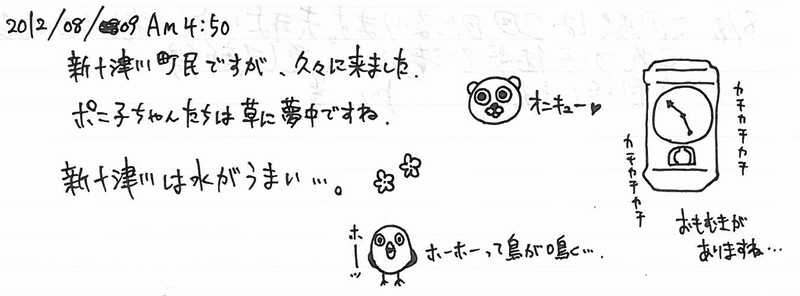 2012/08/09 Am 4:50
新十津川町民ですが、久々に来ました。
ポニ子ちゃんたちは草に夢中ですね。
オニキュー♥
カチカチカチ
カチカチカチ
新十津川は水がうまい…。
おもむきが
ありますね…
ホーッ
ホーホーって鳥が鳴く…